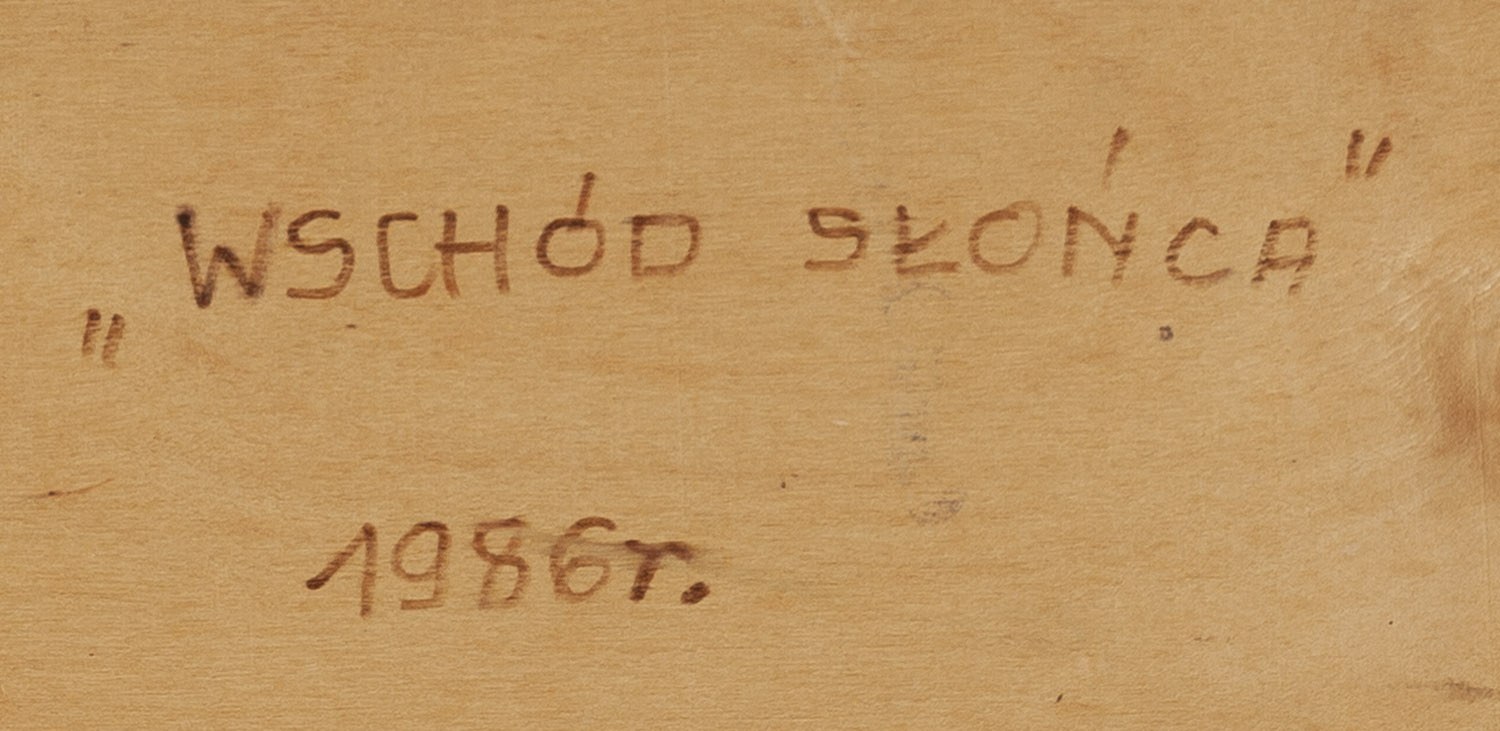 „WSCHÓD SŁOŃCA"
1986r.